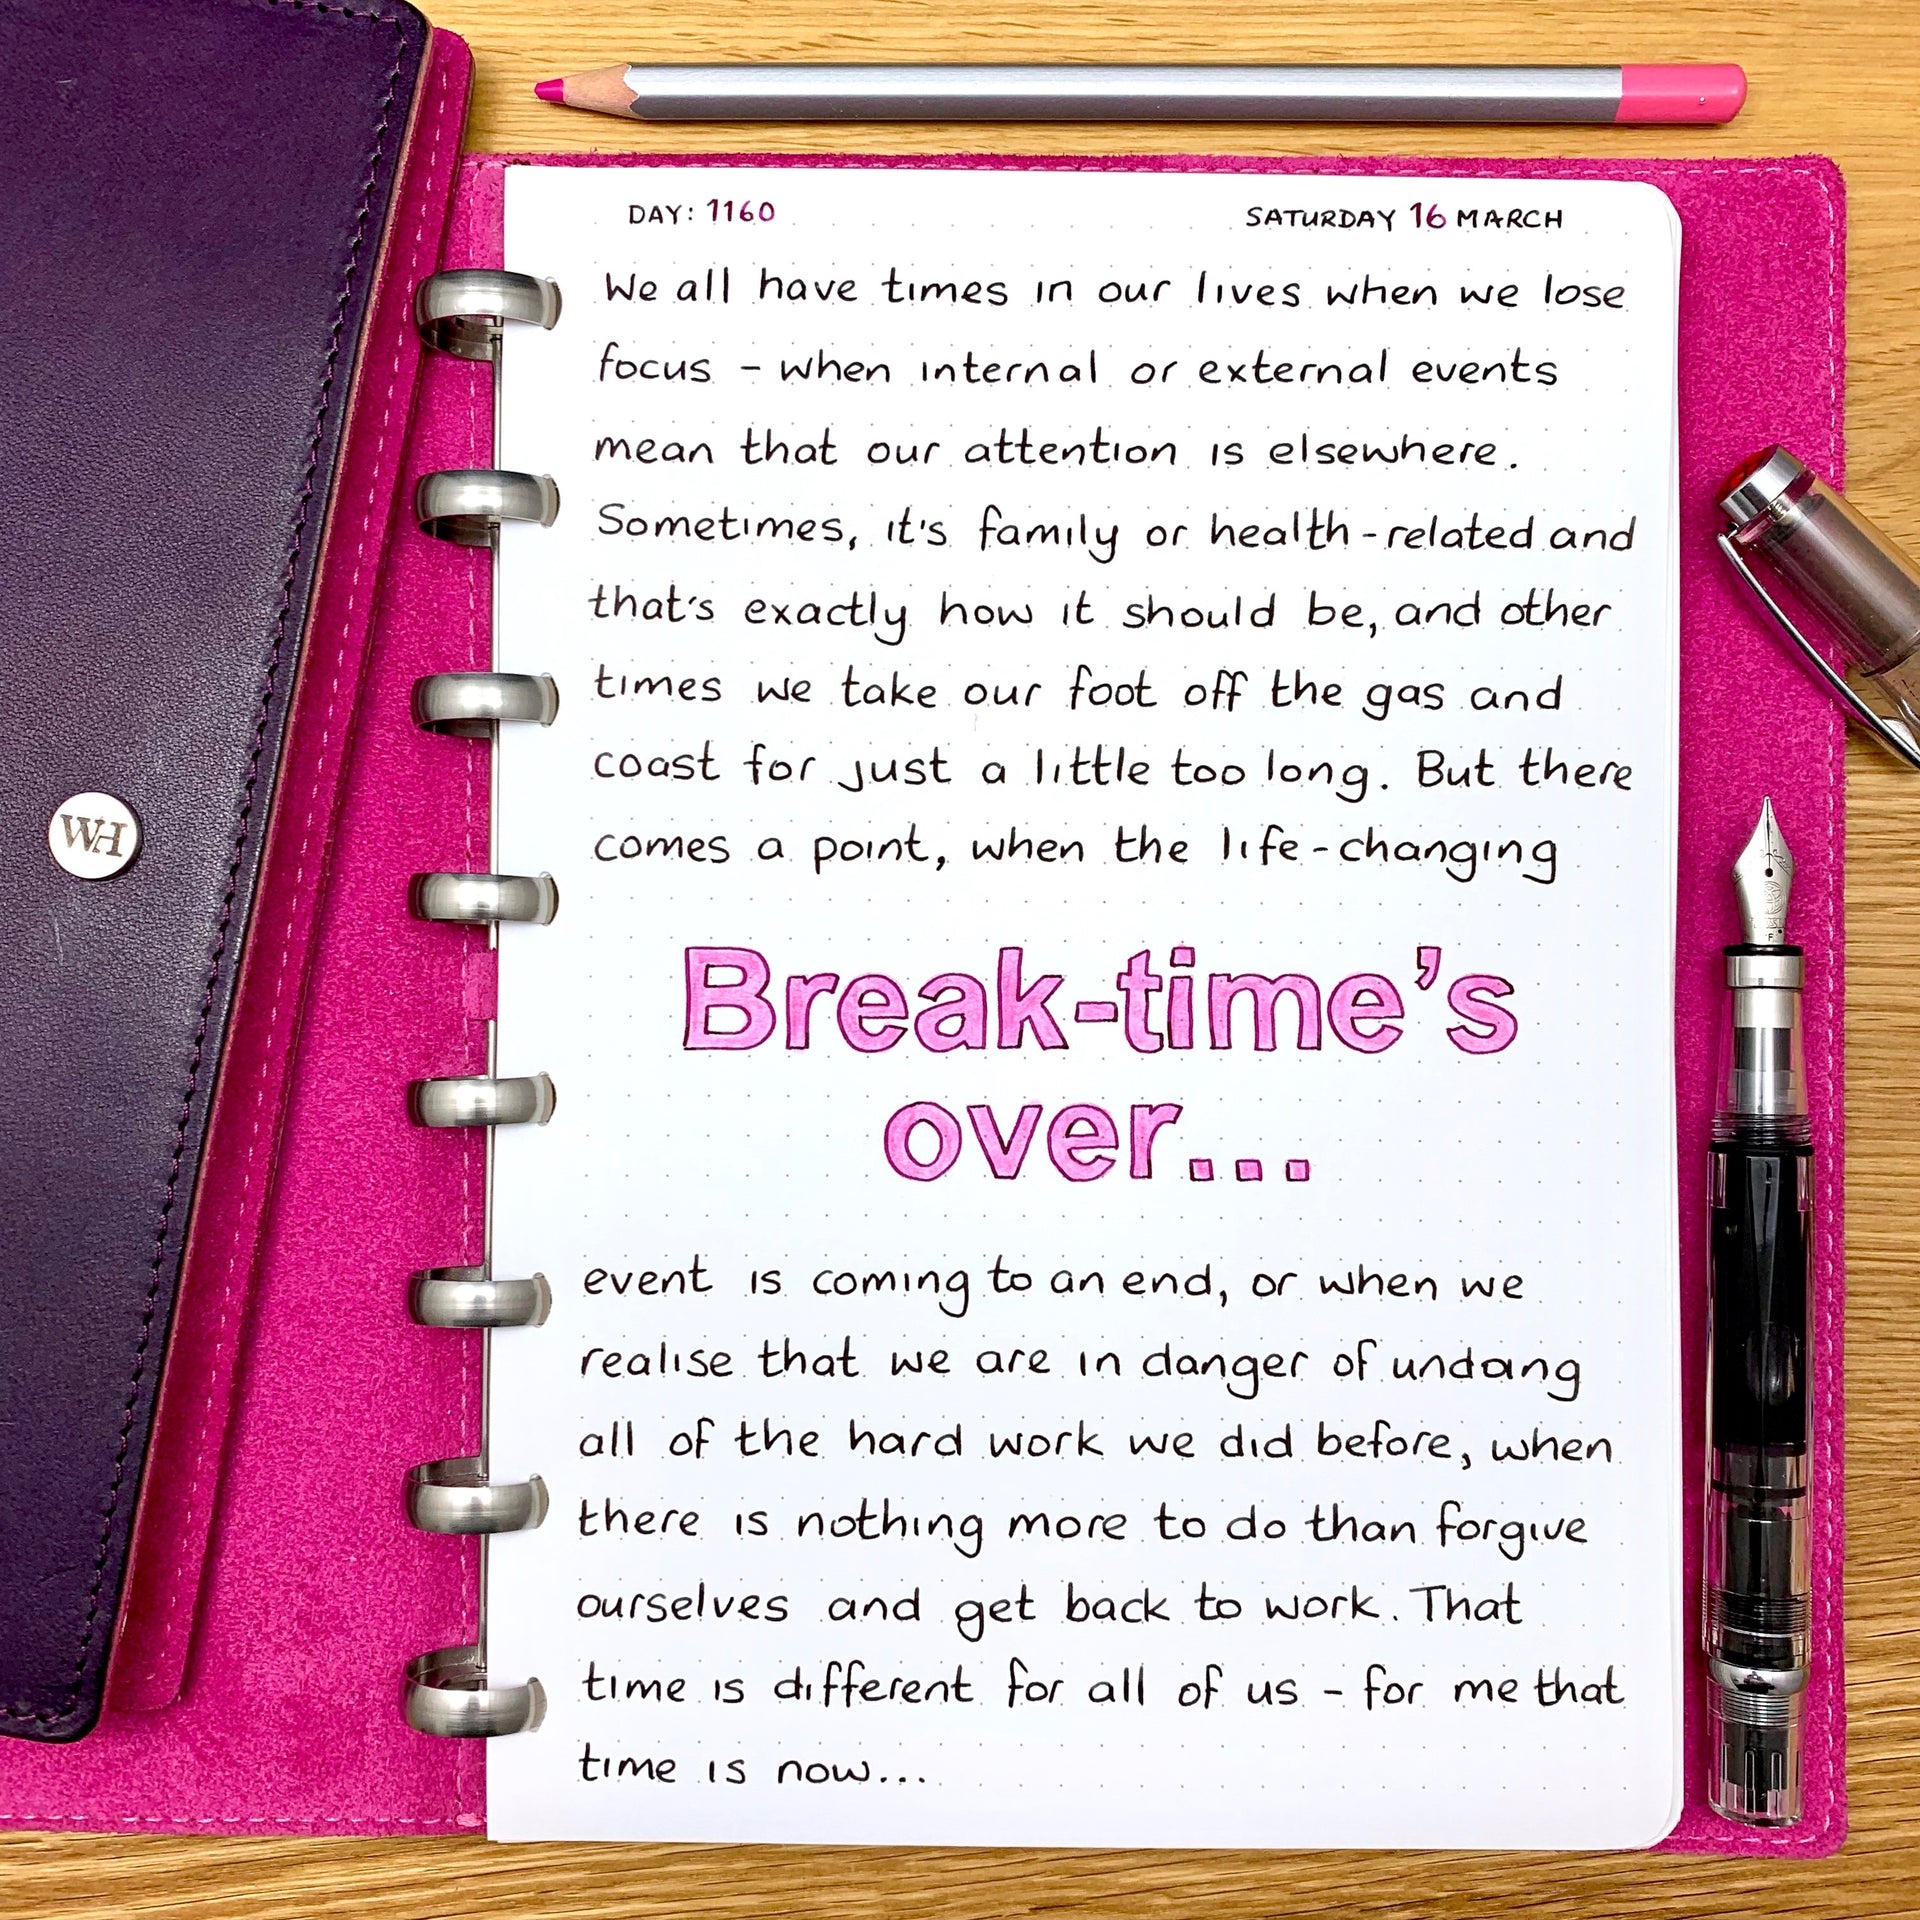 DAY: 1160
SATURDAY 16 MARCH
We all have times in our lives when we lose
focus - when internal or external events
mean that our attention is elsewhere.
Sometimes, it's family or health-related and
that's exactly how it should be, and other
times we take our foot off the gas and
coast for just a little too long. But there
comes a point, when the life-changing
Break-time's
over...
event is coming to an end, or when we
realise that we are in danger of undoing
all of the hard work we did before, when
there is nothing more to do than forgive
ourselves and get back to work. That
time is different for all of us - for me that
time is now...
WH
F